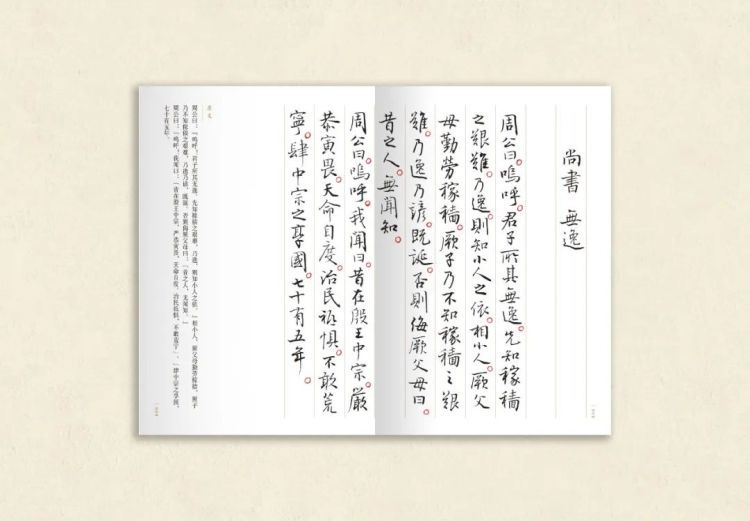 尚書 無逸
周公曰。嗚呼。君子所其無逸。先知稼穡
之艱難。乃逸。則知小人之依。相小人。厥父
母勤勞稼穡。厥子乃不知稼穡之艱
難。乃逸乃諺。既誕。否則侮厥父母曰。
昔之人。無聞知。
周公曰。嗚呼。我聞曰。昔在殷王中宗。嚴
恭寅畏。天命自度。治民祗懼。不敢荒
寧。肆中宗之享國。七十有五年。
原文
周公曰：「呜呼！君子所其无逸。先知稼穑之艰难，乃逸，则知小人之依。相小人，厥父母勤劳稼穑，厥子
乃不知稼穑之艰难，乃逸乃谚。既诞，否则侮厥父母曰：『昔之人，无闻知。』」
周公曰：「呜呼！我闻曰：『昔在殷王中宗，严恭寅畏，天命自度，治民祗惧，不敢荒宁』。肆中宗之享国，
七十有五年。